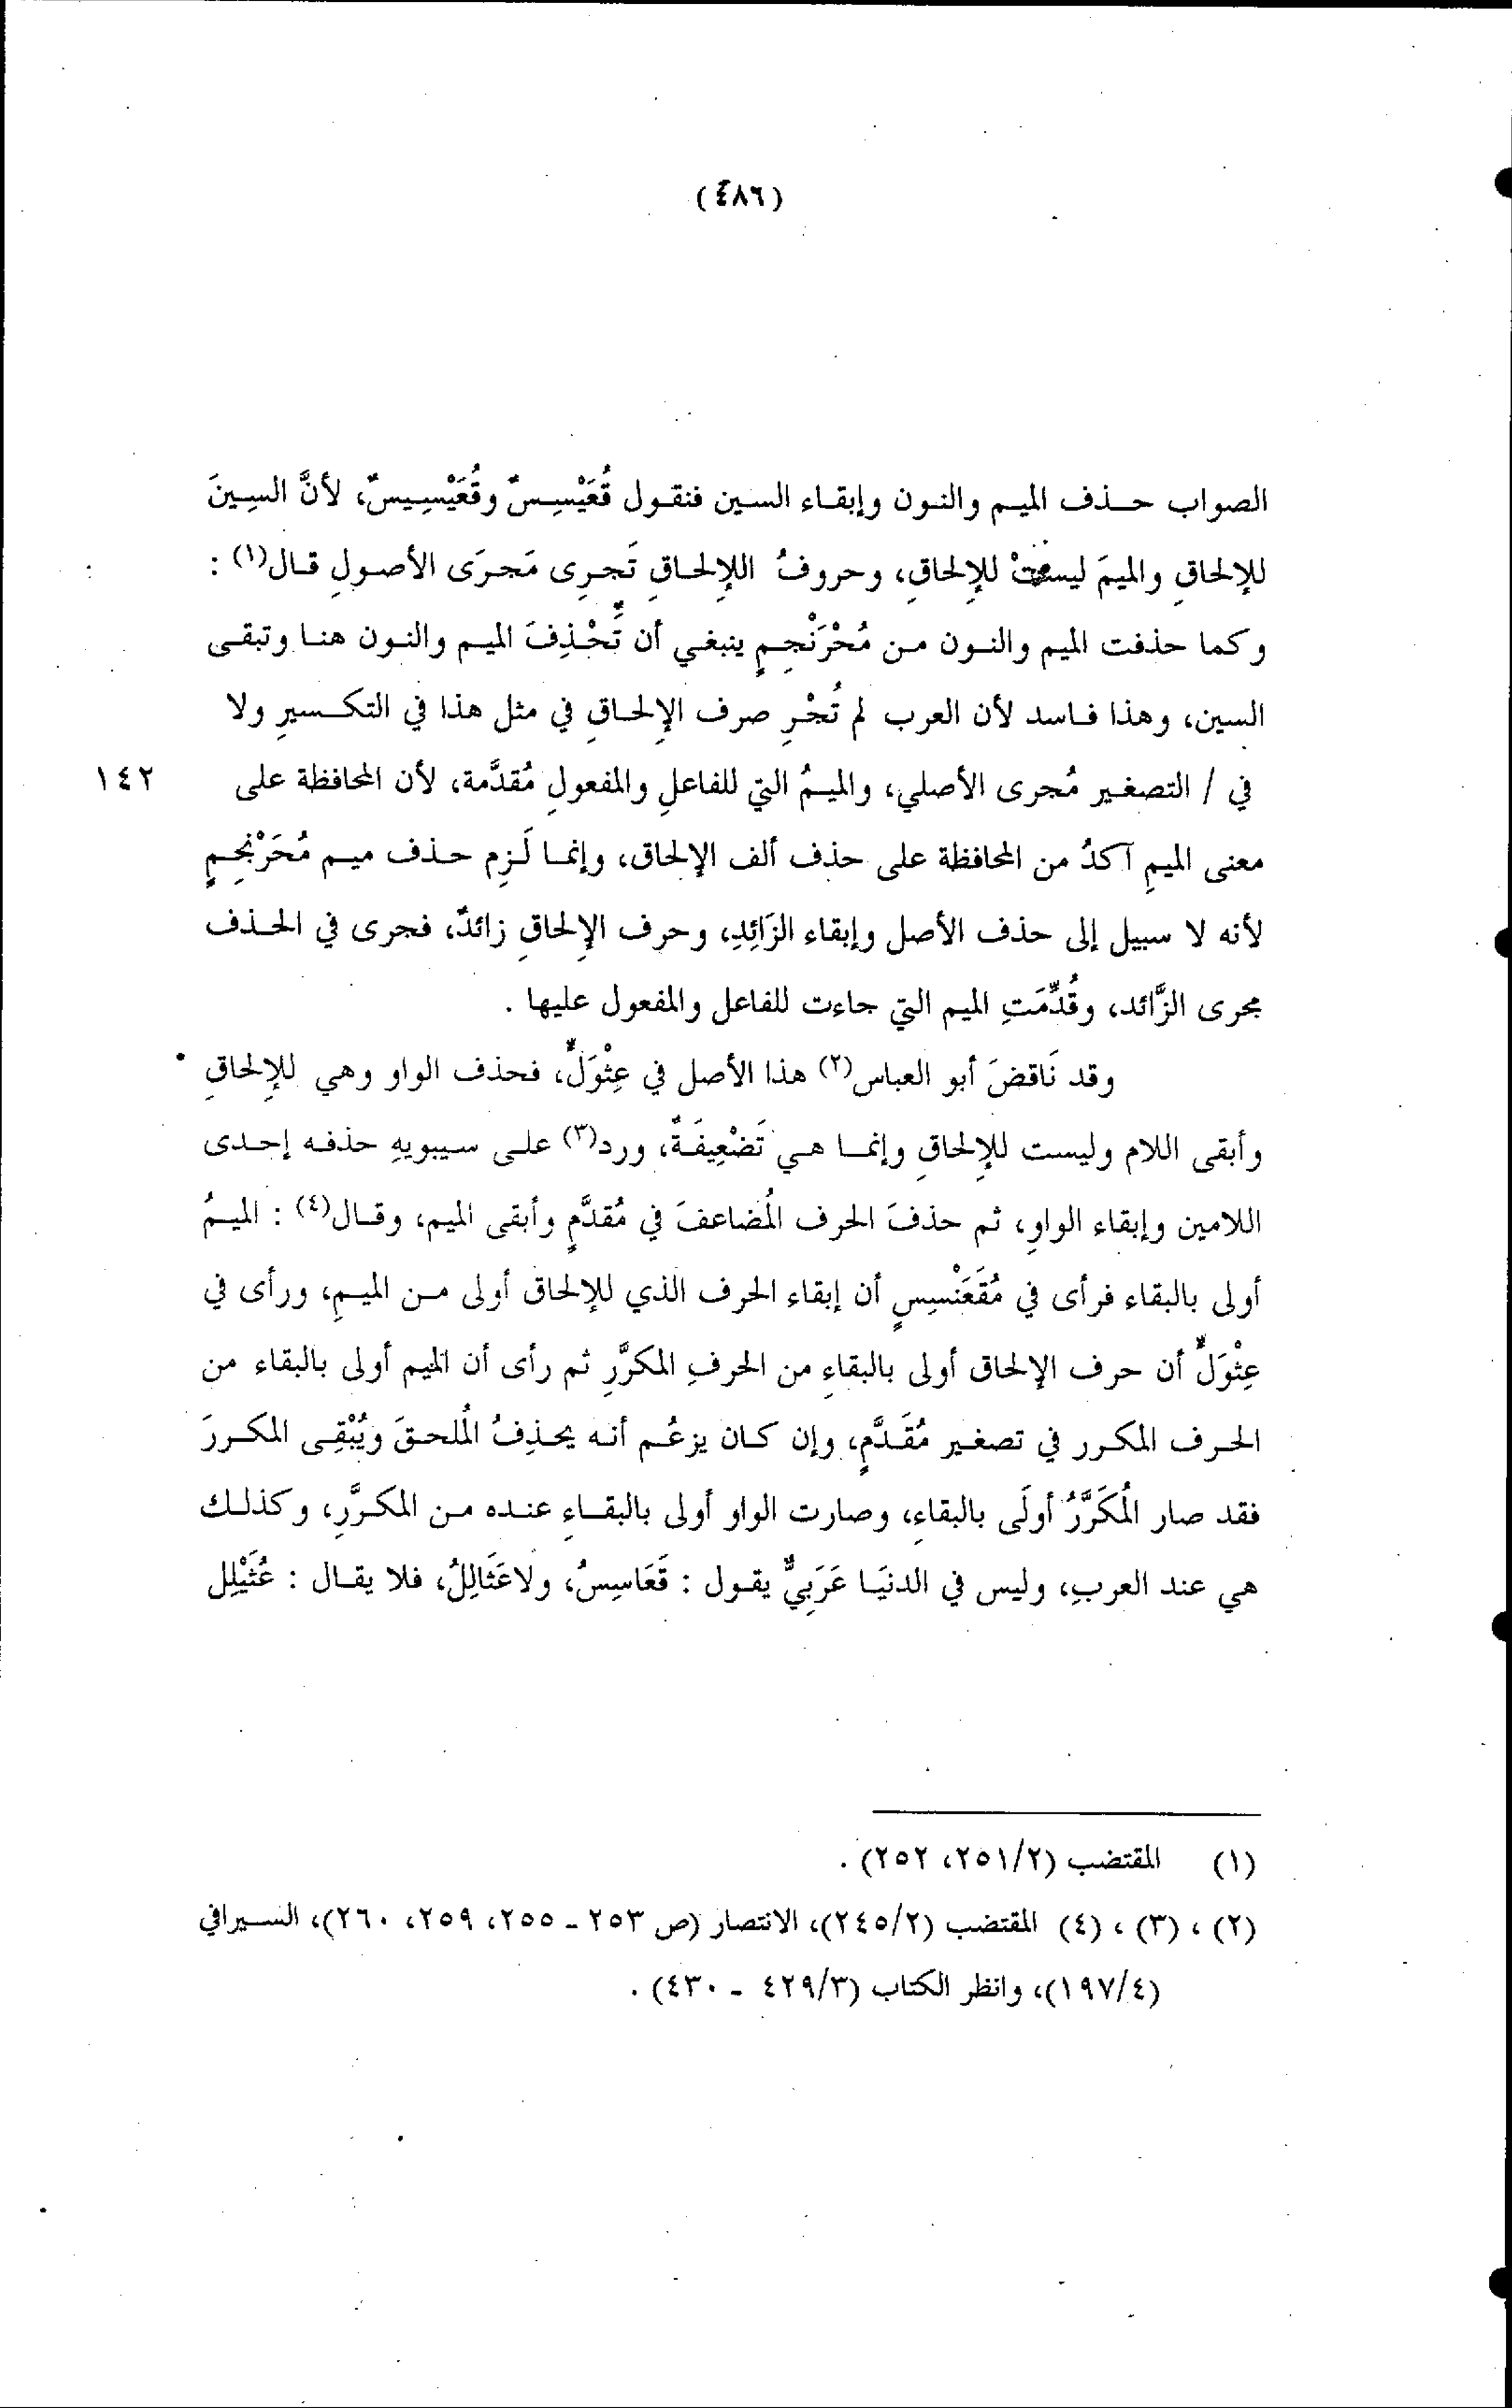 (٤٨٦)
الصواب حذف الميم والنون وإبقاء السين فنقول قُعَيْسِسٌ وقُعَيْسِيسٌ، لأنَّ السِينَ
للإلحاقِ والميمَ ليست للإِلحاقِ، وحروفُ اللإِلحاقِ تَجرِى مَجرَى الأصولِ قال(١) :
وكما حذفت الميم والنون من مُحْرَنْجمٍ ينبغي أن تَُحْذِفَ الميم والنون هنا وتبقى
السين، وهذا فاسد لأن العرب لم تُجْرِ صرف الإِلحاقِ في مثل هذا في التكسيرِ ولا
في / التصغير مُجرى الأصلي، والميمُ التي للفاعلِ والمفعولِ مُقدَّمة، لأن المحافظة على ١٤٢
معنى الميمِ آكدُ من المحافظة على حذف ألف الإلحاق، وإنما لَزِم حذف ميم مُحَرْنْجِمٍ
لأنه لا سبيل إلى حذف الأصل وإبقاء الزَائِدِ، وحرف الإِلحاقِ زائدٌ، فجرى في الحذف
مجرى الزَّائد، وقُدِّمَتِ الميم التي جاءت للفاعل والمفعول عليها .
وقد نَاقضَ أبو العباس(٢) هذا الأصل في عِثْوَلٍّ، فحذف الواو وهي للإِلحاقِ
وأبقى اللام وليست للإِلحاقِ وإنما هي تَضْعِيفَةٌ، ورد(٣) على سيبويهِ حذفه إحدى
اللامين وإبقاء الواوِ، ثم حذفَ الحرف المُضاعفَ في مُقدَّمٍ وأبقى الميم، وقال(٤) : الميمُ
أولى بالبقاء فرأى في مُقَعَنْسِسٍ أن إبقاء الحرف الذي للإلحاق أولى من الميمِ، ورأى في
عِثْوَلٍّ أن حرف الإلحاق أولى بالبقاءِ من الحرفِ المكرَّرِ ثم رأى أن الميم أولى بالبقاء من
الحرف المكرر في تصغير مُقَدَّمٍ، وإن كان يزعُم أنه يحذِفُ المُلحقَ ويُبْقِى المكررَ
فقد صار المُكَرَّرُ أولَى بالبقاءِ، وصارت الواو أولى بالبقاءِ عنده من المكرَّرِ، وكذلك
هي عند العربِ، وليس في الدنيَا عَرَبِيٌّ يقول : قَعَاسِسُ، ولاعَثَالِلُ، فلا يقال : عُثَيْلِل
(١) المقتضب (٢٥١/٢، ٢٥٢) .
(٢) ، (٣) ، (٤) المقتضب (٢٤٥/٢)، الانتصار (ص ٢٥٣ - ٢٥٥، ٢٥٩، ٢٦٠)، السيرافي
(١٩٧/٤)، وانظر الكتاب (٤٢٩/٣ - ٤٣٠) .